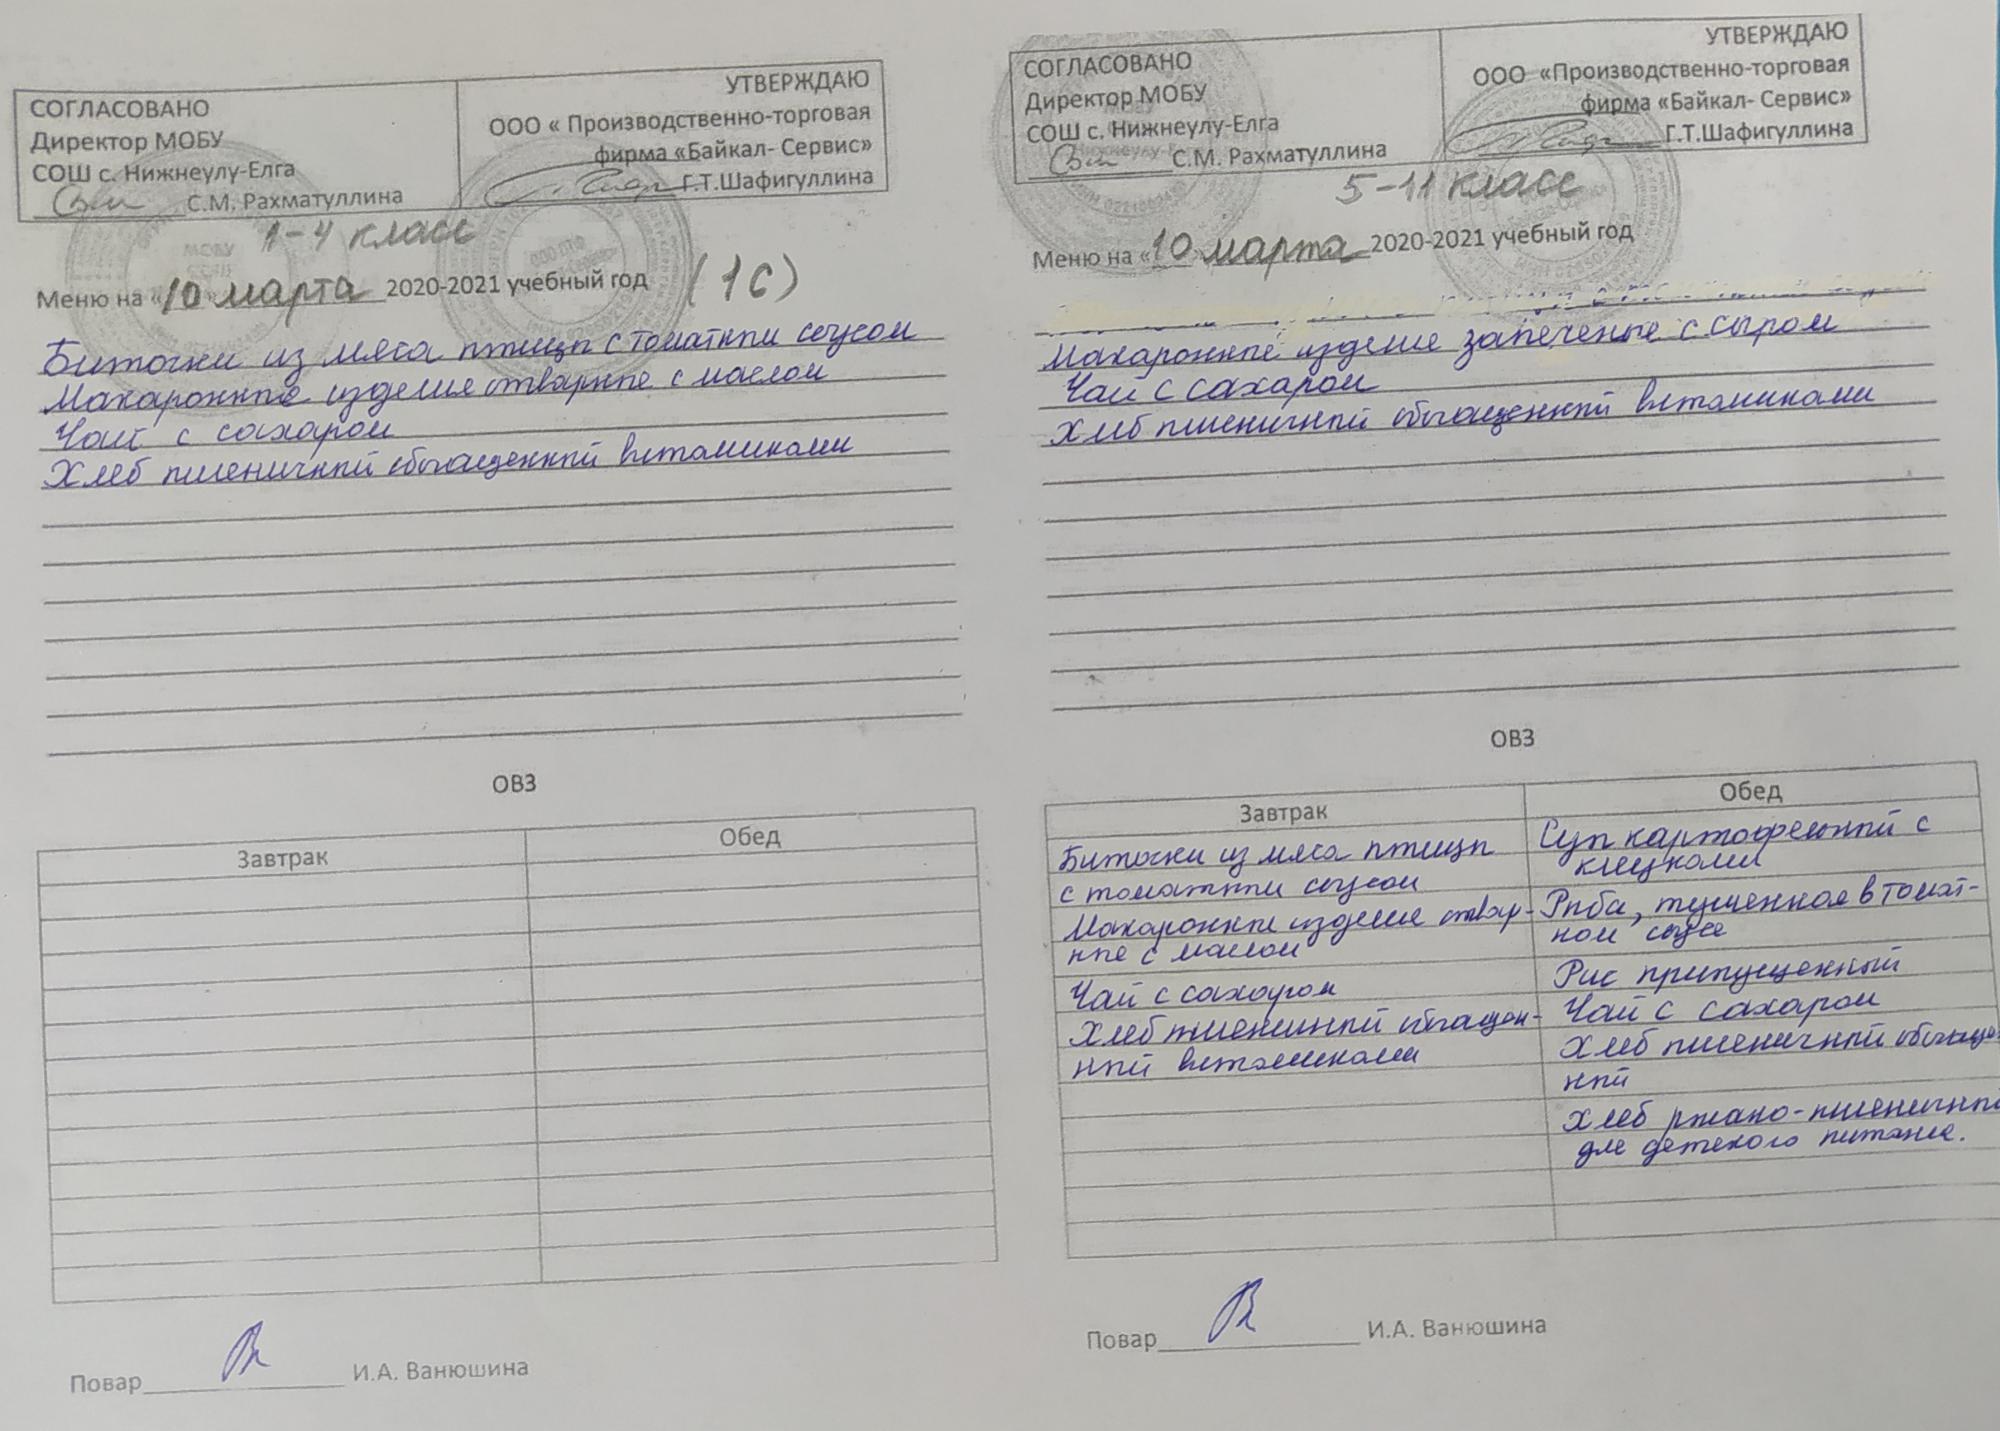 СОГЛАСОВАНО
Директор МОБУ
СОШ с. Нижнеулу-Елга
С.М. Рахматуллина
УТВЕРЖДАЮ
ООО « Производственно-торговая
фирма «Байкал- Сервис»
Г.Т.Шафигуллина
1-4 класс
Меню на «10» марта 2020-2021 учебный год (1С)
Биточки из мяса птицы с томатны соусом
Макаронные изделия отварные с маслом
Чай с сахаром
Хлеб пшеничный обогащенный витаминами
ОВЗ
Завтрак Обед
Повар И.А. Ванюшина
СОГЛАСОВАНО
Директор МОБУ
СОШ с. Нижнеулу-Елга
С.М. Рахматуллина
УТВЕРЖДАЮ
ООО «Производственно-торговая
фирма «Байкал- Сервис»
Г.Т.Шафигуллина
5-11 класс
Меню на «10» марта 2020-2021 учебный год
Макаронные изделие запеченые с сыром
Чай с сахаром
Хлеб пшеничный обогащенный витаминами
ОВЗ
Завтрак
Биточки из мяса птицы
с томатны соусом
Макаронны изделия отвар-
ные с маслом
Чай с сахаром
Хлеб пшеничный обогащен-
ный витаминами
Обед
Суп картофельный с
клецками
Рыба, тушенная в томат-
ном соусе
Рис припущенный
Чай с сахаром
Хлеб пшеничный обогаще-
нный
Хлеб ржано-пшеничный
для детского питания.
Повар И.А. Ванюшина